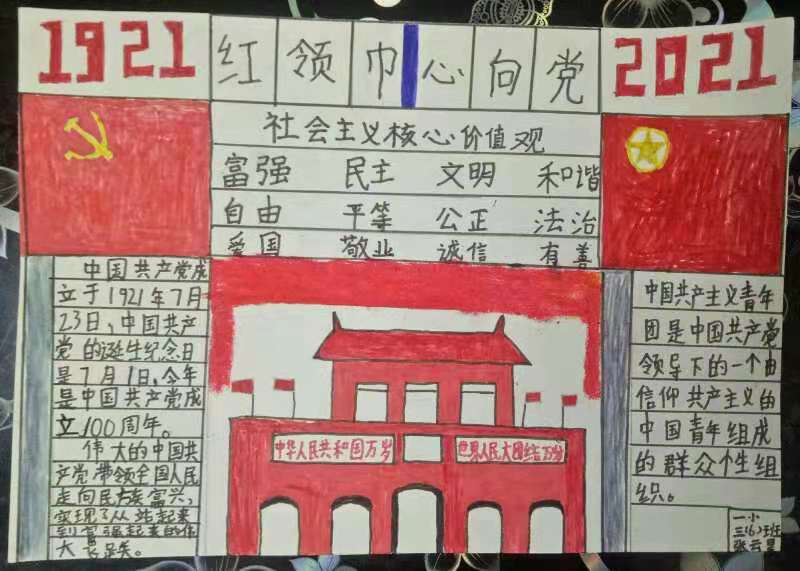 1921 红领巾心向党 2021
社会主义核心价值观
富强 民主 文明 和谐
自由 平等 公正 法治
爱国 敬业 诚信 有善
中国共产党成
立于1921年7月
23日,中国共产
党的诞生纪念日
是7月1日,今年
是中国共产党成
立100周年。
伟大的中国共
产党带领全国人民
走向民族富兴,
实现了从站起来
到富强起来的伟
大
中华人民共和国万岁
世界人民大团结万岁
中国共产主义青年
团是中国共产党
领导下的一个由
信仰共产主义的
中国青年组成
的群众个性组
织。
一小
三(6)班
张云